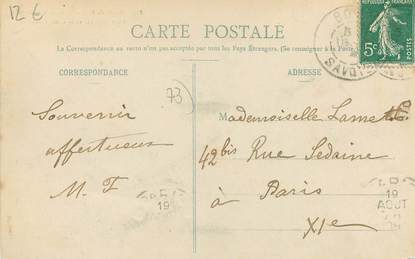 12 €
CARTE POSTALE
La Correspondance au recto n'est pas acceptée par tous les Pays Étrangers. (Se renseigner à la Poste
CORRESPONDANCE
ADRESSE
SAVOIE
5c
POSTES
73
Souvenir
affectueux
M. F
Mademoiselle
42 bis Rue Sedaine
à Paris
XIe
19
19
AOUT